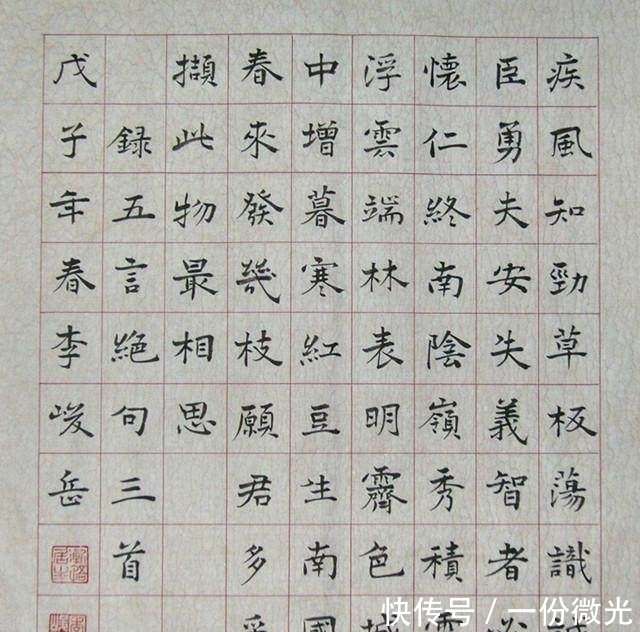 疾風知勁草板蕩識
臣勇夫安失義智者必
懷仁終南陰嶺秀積
浮雲端林表明霽色城
中增暮寒紅豆生南國
春來發幾枝願君多采
擷此物最相思
録五言絶句三首
戊子年春李峻岳
快传号 / 一份微光